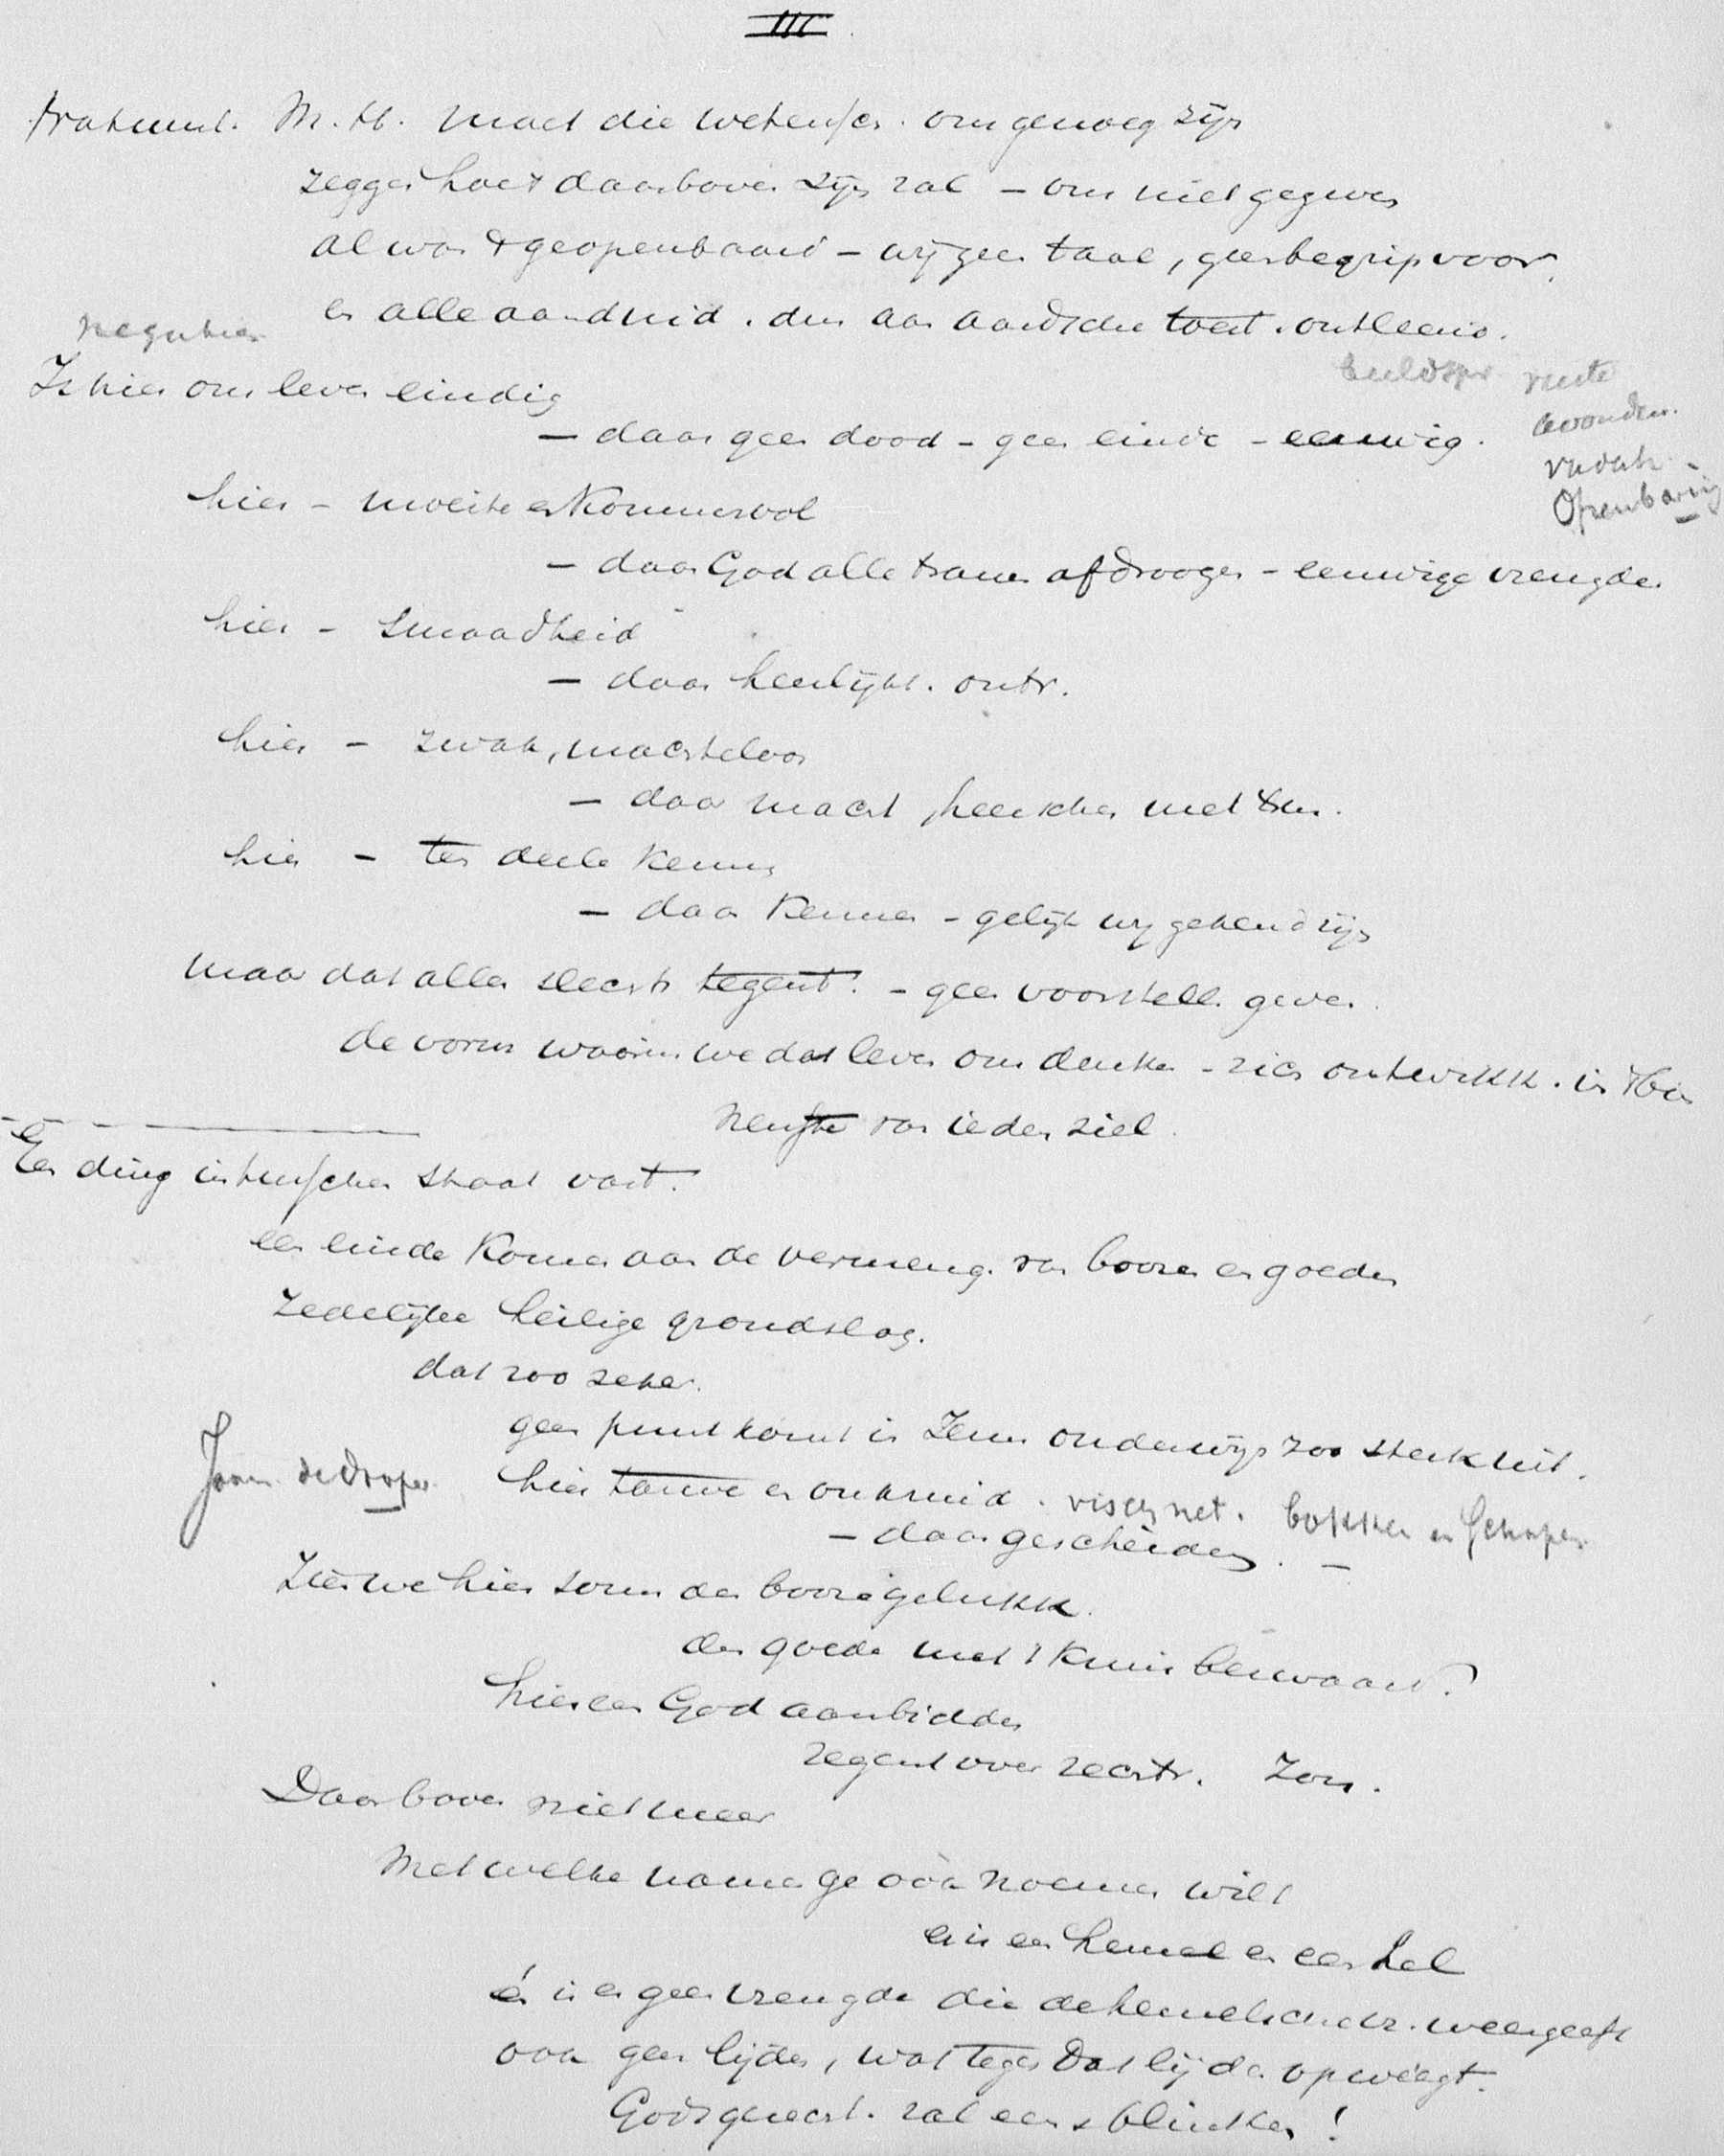 III
M. H. maar die wetensch. ons genoeg zijn
zeggen hoe 't daarboven zijn zal – ons niet gegeven
al was 't geopenbaard – wij geen taal, geen begrip voor.
en alle aanduid. den aan aardsche toest. ontleend.
negatien
Is hier ons leven eindig
beeldspr. ruste
– daar geen dood – geen einde – eeuwig.
avondm.
Openbaring
hier – moeite en kommervol
– daar God alle tranen afdroogen – eeuwige vreugde
hier – smaadheid
– daar heerlijkh. ontv.
hier – zwak, machteloos
– daar macht heerschen met
hier – ten deele kennen
– daar kennen – gelijk wij gekend zijn
maar dat alles slechts tegenst. – geen voorstell. geven.
de vorm waarin we dat leven ons denken – zich ontwikk. in 't bin
nenste van ieder ziel.
Een ding intusschen staat vast.
een einde komen aan de vermeng. van boozen en goeden
zedelijke heilige grondslag.
dat zoo zeker.
geen punt komt in Jezus onderwijs zoo sterk uit.
Joan. de Dooper
hier tarwe en onkruid. vischnet. bokken en schapen
– daar gescheiden. –
Zien we hier soms den booze gelukk.
den goede met 't kruis bezwaard?
hier een God aanbidden
regent over rechtv. Zon.
Daarboven niet meer
Met welke namen ge ook noemen wilt
er is een hemel en een hel
én is er geen vreugde die de hemelsche vr. weergeeft
ook geen lijden, wat tegen dat lijden opweegt.
Gods gerecht. zal eens blinken!